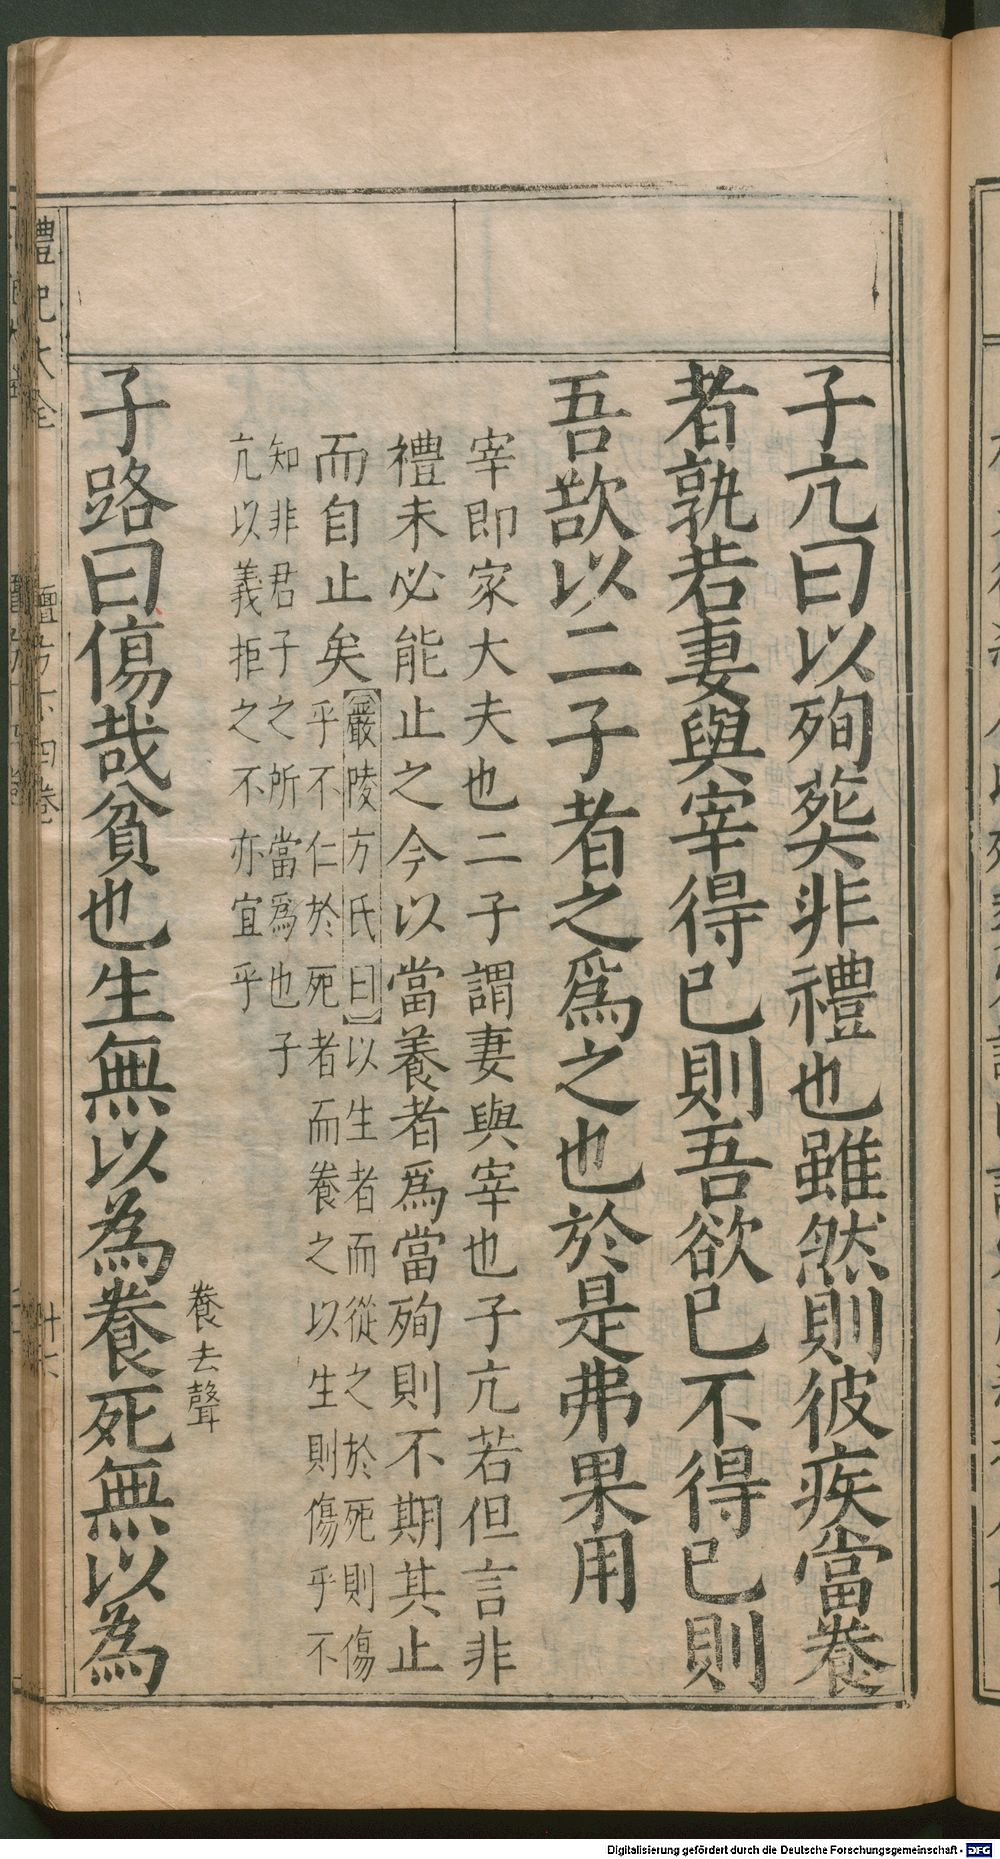 子亢曰以殉葬非禮也雖然則彼疾當養
者孰若妻與宰得已則吾欲已不得已則
吾欲以二子者之爲之也於是弗果用
宰即家大夫也二子謂妻與宰也子亢若但言非
禮未必能止之今以當養者爲當殉則不期其止
而自止矣
嚴陵方氏曰以生者而從之於死則傷
乎不仁於死者而養之以生則傷乎不
知非君子之所當爲也子
亢以義拒之不亦宜乎
養去聲
子路曰傷哉貧也生無以為養死無以為
禮記大全
檀弓下四卷
廿六
Digitalisierung gefördert durch die Deutsche Forschungsgemeinschaft - DFG